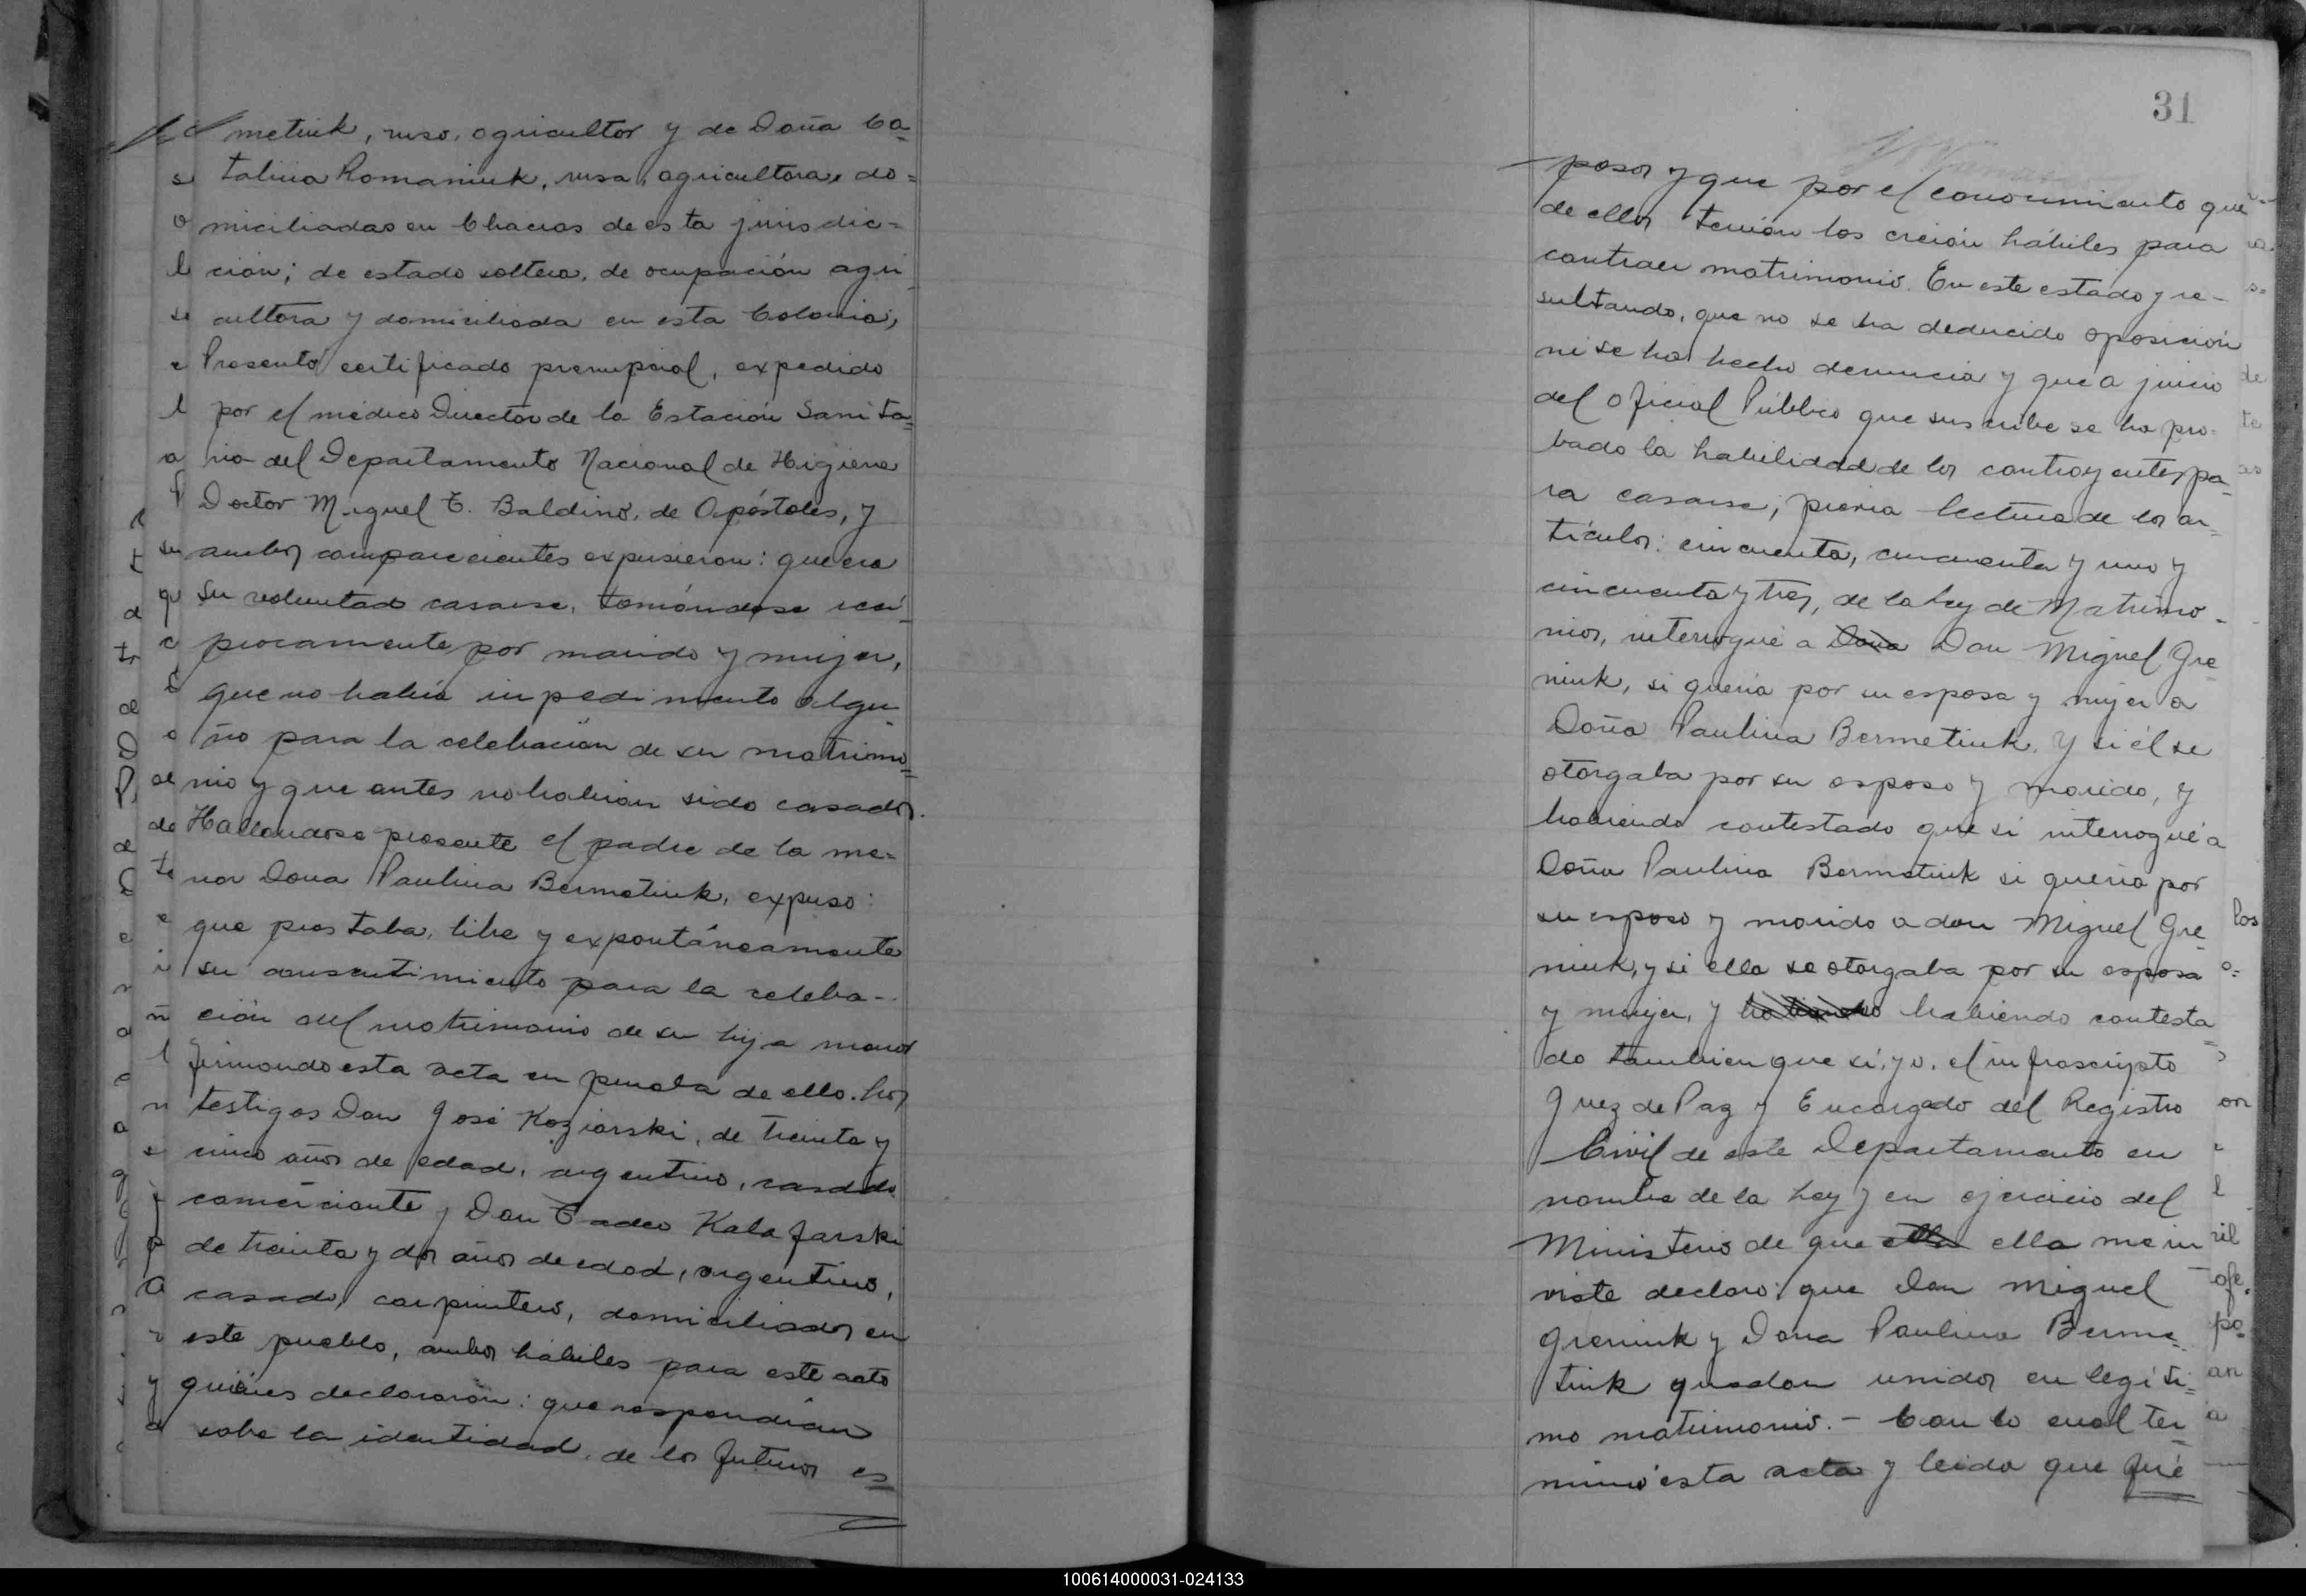 metiuk, ruso, agricultor y de Doña Ca=
talina Romaniuk, rusa, agricultora, do=
miciliadas en Chacras de esta jurisdic=
ción; de estado soltera, de ocupación agri
cultora y domiciliada en esta Colonia;
Presentó certificado prenupcial, expedido
por el médico Director de la Estación Sanita=
ria del Departamento Nacional de Higiene
Doctor Miguel T. Baldino, de Apóstoles, y
ambos comparecientes expusieron: que era
su voluntad casarse, tomándose recí-
procamente por marido y mujer,
que no había impedimento algu-
no para la celebración de su matrimo=
nio y que antes no habian sido casados.
Hallandose presente el padre de la me=
nor Dona Paulina Bermetiuk, expuso:
que prestaba, libre y expontáneamente
su consentimiento para la celebra-
ción del matrimonio de su hija menor
firmando esta acta en prueba de ello. Los
testigos Don José Koziarski, de treinta y
cinco años de edad, argentino, casado
comerciante y Don Tadeo Kalafarski
de treinta y dos años de edad, argentino,
casado, carpintero, domiciliados en
este pueblo, ambos hábiles para este acto
quiénes declararon: que respondian
sobre la identidad, de los futuros es
31
posos y que por el conocimiento que
de ellos tenían los creían hábiles para
contraer matrimonio. En este estado y re-
sultando, que no se ha deducido oposición
ni se ha hecho denuncia y que a juicio
del Oficial Público que suscribe se ha pro-
bado la habilidad de los contrayentes pa-
ra casarse, previa lectura de los ar-
tículos: cincuenta, cincuenta y uno y
cincuenta y tres, de la Ley de Matrimo-
nios, interrogué a Dona Don Miguel Gre
niuk, si quería por su esposa y mujer a
Doña Paulina Bermetiuk, y si él se
otorgaba por su esposo y marido, y
habiendo contestado que si interrogué a
Doña Paulina Bermetiuk si quería por
su esposo y marido a don Miguel Gre-
niuk, y si ella se otorgaba por su esposa
y mujer, y habiendo contesta=
do tambien que sí, yo, el infrascripto
Juez de Paz y Encargado del Registro
Civil de este Departamento en
nombre de la Ley y en ejercicio del
Ministerio de que ella ella me in
viste declaro: que Don Miguel
Greniuk y Dona Paulina Berme=
tiuk quedan unidos en legíti=
mo matrimonio.- Con lo cual ter
minó esta acta y leida que fué
100614000031-024133